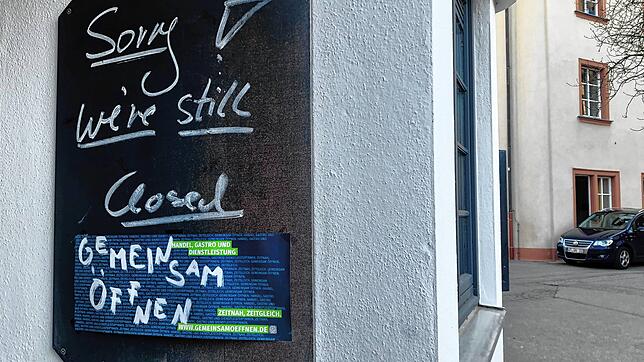 Sorry
We're still
Closed
GEMEIN
SAM
ÖFF
NEN
HANDEL, GASTRO UND
DIENSTLEISTUNG
ZEITNAH, ZEITGLEICH.
WWW.GEMEINSAMOEFFNEN.DE